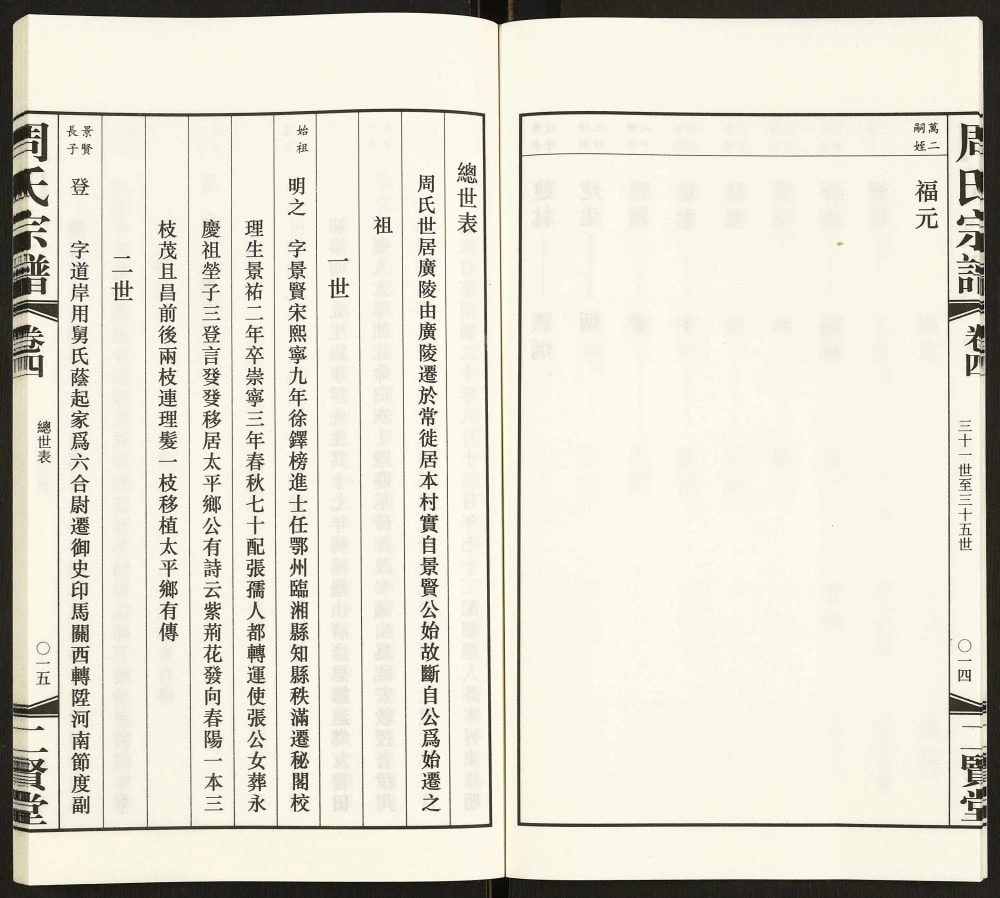 周氏宗譜
卷四
三十一世至三十五世
〇一四
二賢堂
萬二
嗣姪
福元
總世表
周氏世居廣陵由廣陵遷於常徙居本村實自景賢公始故斷自公爲始遷之
祖
一世
始祖
明之 字景賢宋熙寧九年徐鐸榜進士任鄂州臨湘縣知縣秩滿遷秘閣校
理生景祐二年卒崇寧三年春秋七十配張孺人都轉運使張公女葬永
慶祖塋子三登言發發移居太平鄉公有詩云紫荊花發向春陽一本三
枝茂且昌前後兩枝連理髮一枝移植太平鄉有傳
二世
景賢
長子
登 字道岸用舅氏蔭起家爲六合尉遷御史印馬關西轉陞河南節度副
周氏宗譜
卷四
總世表
〇一五
二賢堂